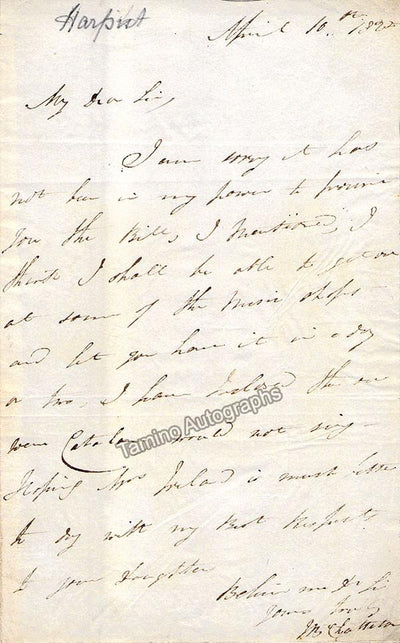 Harpist
April 10th
My Dear Sir,
I am sorry it has
not been in my power to procure
you the Bill, I Mentioned, I
think I shall be able to get one
at some of the Music shops
and let you have it in a day
or two, I have Inclosed the one
were would not sing
Hoping Mrs Ireland is much better
to day with my Best Respects
to your daughter
Believe me Dr Sir
Yours truly
Tamino Autographs